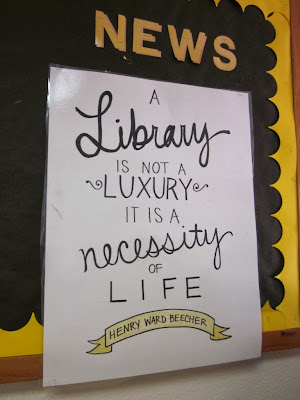 NEWS
A
Library
IS NOT A
LUXURY
IT IS A
necessity
OF
LIFE
HENRY WARD BEECHER